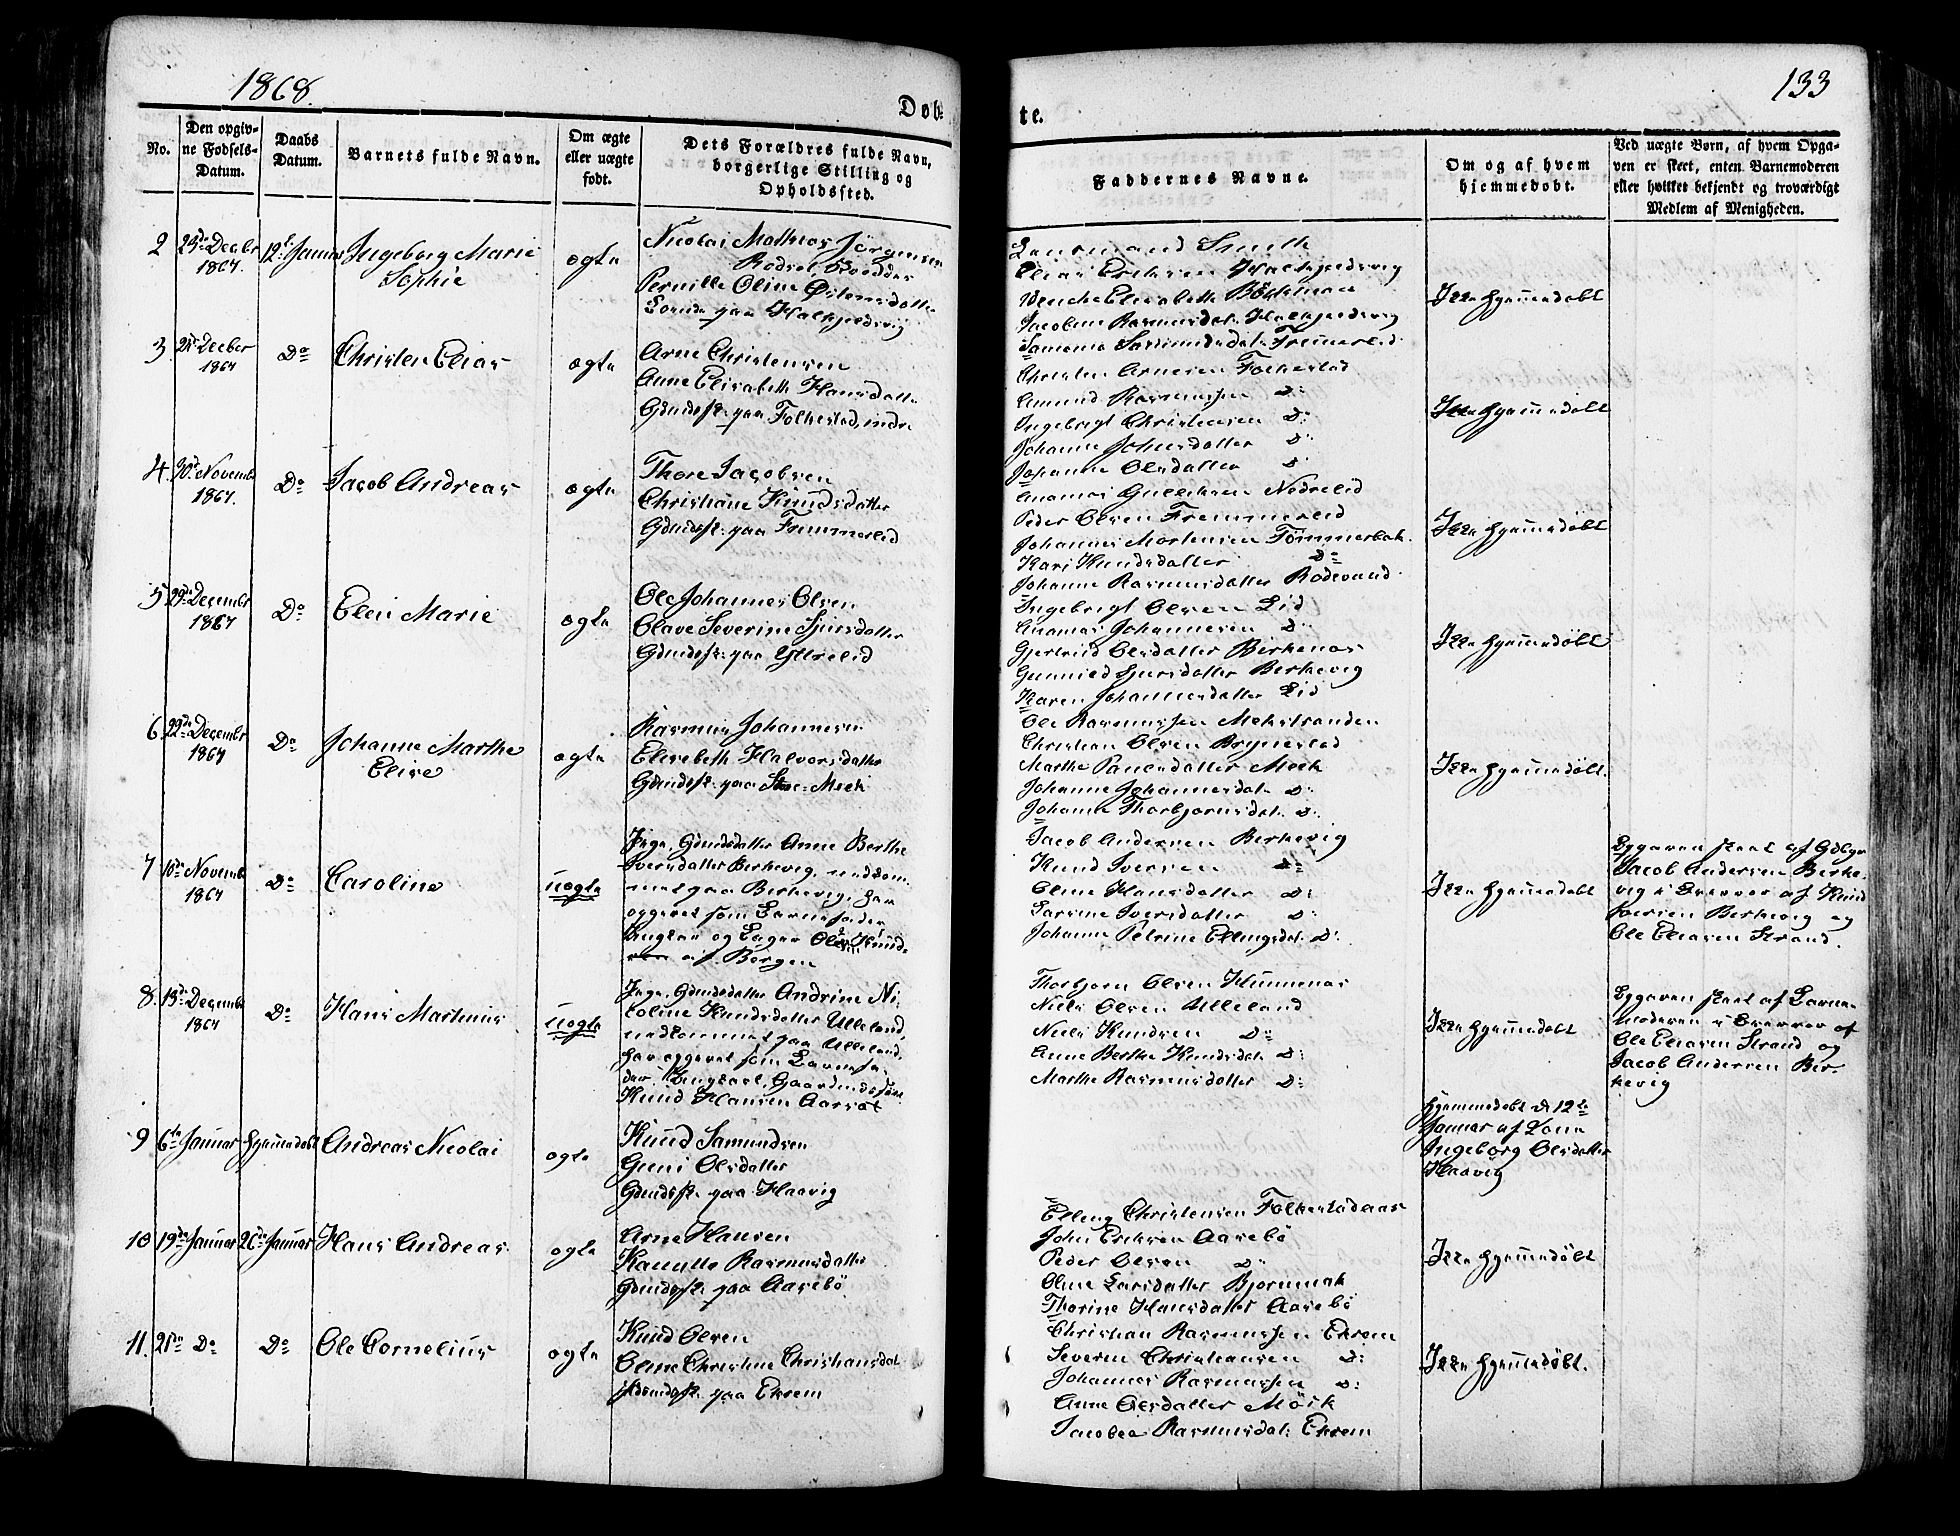 1868.
133
Døbte.
No.
Den opgiv-
ne Fødsels-
Datum.
Daabs
Datum.
Barnets fulde Navn.
Om ægte
eller uægte
født.
Dets Forældres fulde Navn,
borgerlige Stilling og
Opholdssted.
Faddernes Navne.
Om og af hvem
hjemmedøbt.
Ved uægte Børn, af hvem Opga-
ven er skeet, enten Barnemoderen
eller hvilket bekjendt og troværdigt
Medlem af Menigheden.
2
23de Decbr
1867.
12te Januar
Ingeborg Marie
Sophie
ægte
Nicolai Mathias Jörgensen
Pernille Oline Østensdatter
paa Halkjelsvig
Lensmand Smith
Elias Eriksen Halkjelsvig
Wenche Elisabeth
Jacobine Rasmusdat. Halkjelsvig
Ikke hjemmedøbt
3
Decber
1867
Do
Christen Elias
ægte
Arne Christensen
Anne Elisabeth Hansdatter
Gdmdsfk. paa Folkestad, indre
Christen Arnesen Folkestad
Amund Rasmussen Do
Ingebrigt Christensen Do
Johanne Johnsdatter Do
Johanne Olsdatter Do
Ikke hjemmedøbt
4
30te Novembr
1867.
Do
Jacob Andreas
ægte
Thore Jacobsen
Christiane Knudsdatter
Gdmdsfk. paa Fremmerlid
Peder Olsen Fremmerlid
Johannes Mortensen
Kari Knudsdatter Do
Johanne Rasmusdatter Rödevand
Ikke hjemmedøbt
5
29de Decembr
1867
Do
Elen Marie
ægte
Ole Johannes Olsen
Olave Severine Sjursdatter
Gdmdsfk. paa Yttrelid
Ingebrigt Olsen Lid
Johannesen Do
Olsdatter Birkenes
Sjursdatter Berkevig
Karen Johannesdatter Lid
Ikke hjemmedøbt
6
22de Decembr
1867
Do
Johanne Marthe
Elise
ægte
Rasmus Johannesen
Elisebeth Halvorsdatter
Gdmdsfk. paa Store-Meek
Ole Rasmussen Melsstranden
Christian Olsen Brynestad
Marthe Meek
Johanne Johannesdat. Do
Johanne Thorbjørnsdat. Do
Ikke hjemmedøbt.
7
10de Novembr
1867
Do
Caroline
uægte
Pige, Gdmdsdatter Anne Berthe
Iversdatter Berkevig, nedkom-
met paa Berkevig, har
opgivet som Barnefader
Ungkar og Knud-
af Bergen
Jacob Andersen Berkevig
Knud Iversen Do
Oline Hansdatter Do
Iversdatter Do
Johanne Petrine Ellingsdat. Do
Ikke hjemmedøbt
Opgaven skeet af
Jacob Andersen Berke-
vig i Overvær af Knud
Iversen Berkevig og
Ole Eliasen Strand.
8.
13de Decembr
1867
Do
Hans Martinus
uægte
Pige, Gdmdsdatter Andrine Ni-
coline Knudsdatter Ulleland,
nedkommet paa Ulleland,
har opgivet som Barnefa-
der Ungkarl, Gaardmdssøn
Knud Hansen Aarsæt
Thorbjørn Olsen Humnenæs
Niels Olsen Ulleland
Niels Knudsen Do
Anne Berthe Knudsdat. Do
Marthe Rasmusdatter Do
Ikke hjemmedøbt
Opgaven skeet af Barne-
moderen i Overvær af
Ole Eliasen Strand og
Jacob Andersen Ber-
kevig
9
6te Januar
hjemmedøbt
Andreas Nicolai
ægte
Knud Samundsen
Guni Olsdatter
Gdmdsfk. paa Haavig
Hjemmedøbt d. 12te
Januar af Kone
Ingeborg Olsdatter
Haavig
10
19de Januar
26de Januar
Hans Andreas
ægte
Arne Hansen
Rasmusdatter
Gdmdsfk. paa Aarsebö
Elling Christensen Folkestadaas
John Eriksen Aarsebö
Peder Olsen Do
Oline Larsdatter Bjørnnak
Thorine Hansdatter Aarsebö
Ikke hjemmedøbt
11.
21de Do
Do
Ole Cornelius
ægte
Knud Olsen
Oline Christine Christiansdat.
Gdmdsfk. paa Ekrem
Christian Rasmussen Ekrem
Severin Christiansen Do
Johannes Rasmussen Do
Anne Olsdatter Mörk
Jacobea Rasmusdat. Ekrem
Ikke hjemmedøbt.